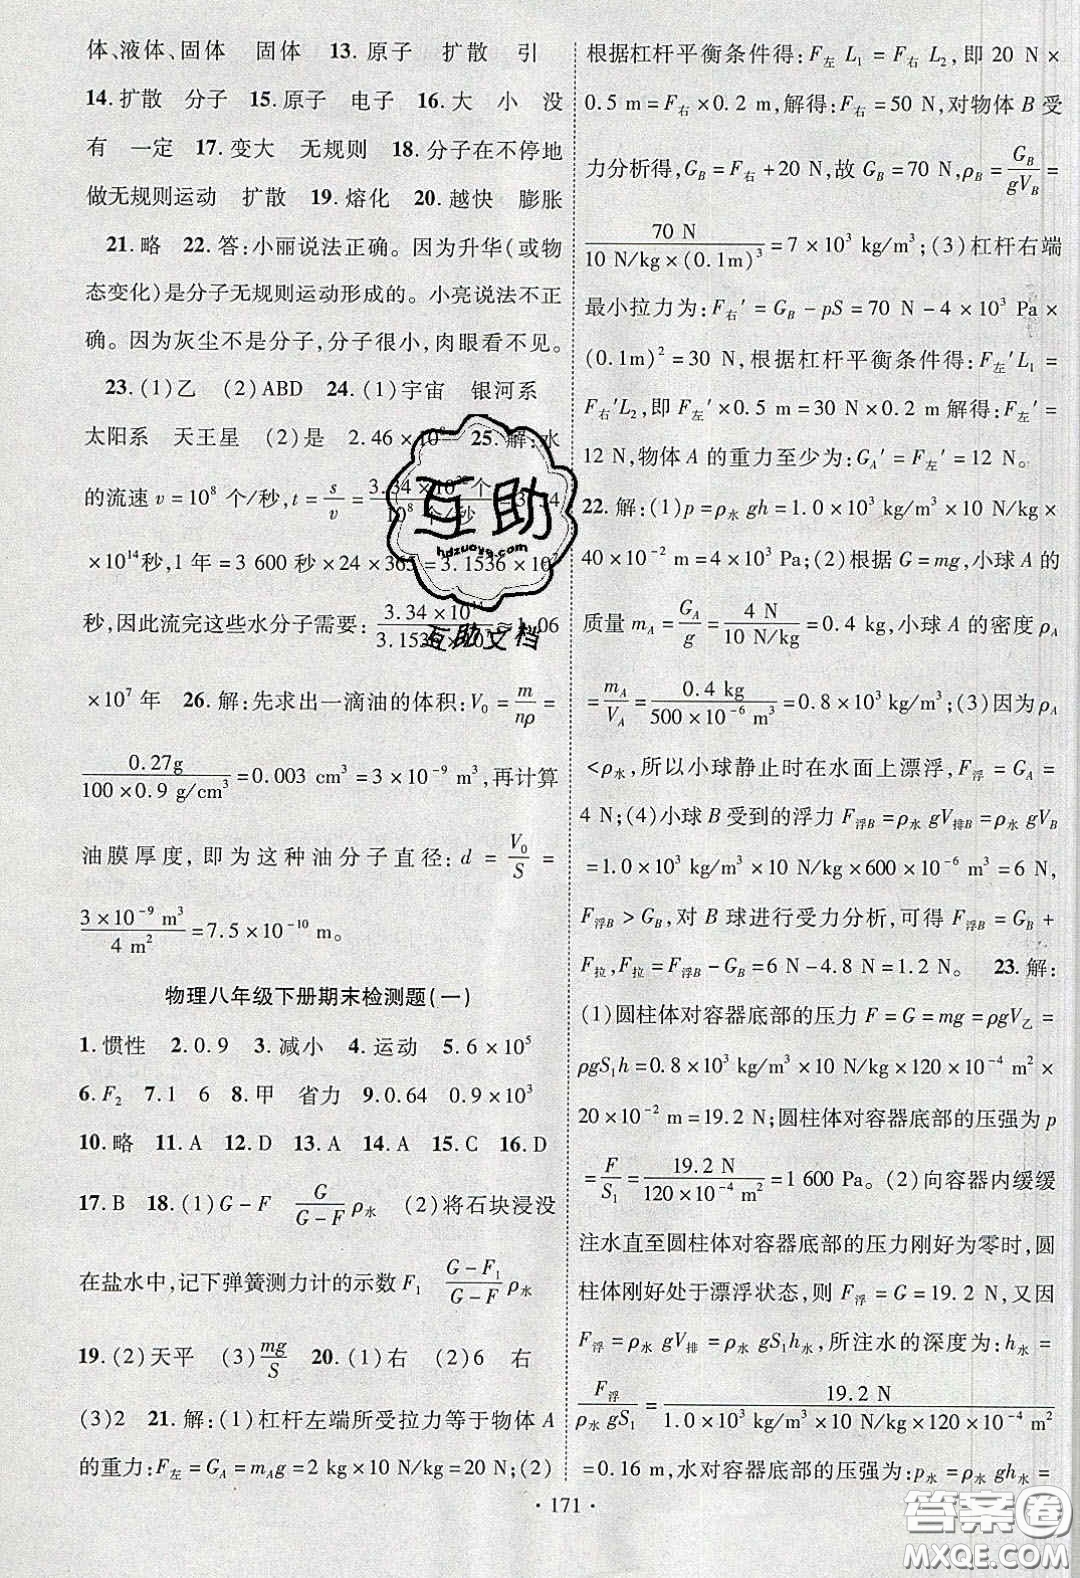 体、液体、固体　固体　13.原子　扩散　引
14.扩散　分子　15.原子　电子　16.大　小　没
有　一定　17.变大　无规则　18.分子在不停地
做无规则运动　扩散　19.熔化　20.越快　膨胀
21.略　22.答:小丽说法正确。因为升华(或物
态变化)是分子无规则运动形成的。小亮说法不正
确。因为灰尘不是分子,分子很小,肉眼看不见。
23.(1)乙　(2)ABD　24.(1)宇宙　银河系
太阳系　天王星　(2)是　2.46×10　25.解:水
的流速v=10⁸ 个/秒,t=s/v=3.34×10 个/10⁸ 个/秒=3.34
×10¹⁴秒,1年=3 600秒×24×365=3.1536×10⁷
秒,因此流完这些水分子需要:3.34×10¹⁴/3.1536×10⁷≈1.06
×10⁷年　26.解:先求出一滴油的体积:V₀=m/nρ=
0.27g/(100×0.9 g/cm³)=0.003 cm³=3×10⁻⁹ m³,再计算
油膜厚度,即为这种油分子直径:d=V₀/S=
3×10⁻⁹ m³/4 m²=7.5×10⁻¹⁰ m。
物理八年级下册期末检测题(一)
1.惯性　2.0.9　3.减小　4.运动　5.6×10⁵
6.F₂　7.1　6　8.甲　省力　9.0.64　0.9×10³
10.略　11.A　12.D　13.A　14.A　15.C　16.D
17.B　18.(1)G-F　G/(G-F) ρ水　(2)将石块浸没
在盐水中,记下弹簧测力计的示数F₁　(G-F₁)/(G-F) ρ水
19.(2)天平　(3)mg/S　20.(1)右　(2)6　右
(3)2　21.解:(1)杠杆左端所受拉力等于物体A
的重力:F左=G_A=m_A g=2 kg×10 N/kg=20 N;(2)
根据杠杆平衡条件得:F左 L₁=F右 L₂,即20 N×
0.5 m=F右×0.2 m,解得:F右=50 N,对物体B受
力分析得,G_B=F右+20 N,故G_B=70 N,ρ_B=G_B/gV_B=
70 N/(10 N/kg×(0.1m)³)=7×10³ kg/m³;(3)杠杆右端
最小拉力为:F右′=G_B-pS=70 N-4×10³ Pa×
(0.1m)²=30 N,根据杠杆平衡条件得:F左′L₁=
F右′L₂,即F左′×0.5 m=30 N×0.2 m解得:F左′=
12 N,物体A的重力至少为:G_A′=F左′=12 N。
22.解:(1)p=ρ水 gh=1.0×10³ kg/m³×10 N/kg×
40×10⁻² m=4×10³ Pa;(2)根据G=mg,小球A的
质量m_A=G_A/g=4 N/10 N/kg=0.4 kg,小球A的密度ρ_A
=m_A/V_A=0.4 kg/(500×10⁻⁶ m³)=0.8×10³ kg/m³;(3)因为ρ_A
<ρ水,所以小球静止时在水面上漂浮,F浮=G_A=
4 N;(4)小球B受到的浮力F浮B=ρ水 gV排B=ρ水 gV_B
=1.0×10³ kg/m³×10 N/kg×600×10⁻⁶ m³=6 N,
F浮B>G_B,对B球进行受力分析,可得F浮B=G_B+
F拉,F拉=F浮B-G_B=6 N-4.8 N=1.2 N。　23.解:
(1)圆柱体对容器底部的压力F=G=mg=ρgV乙=
ρgS₁h=0.8×10³ kg/m³×10 N/kg×120×10⁻⁴ m²×
20×10⁻² m=19.2 N;圆柱体对容器底部的压强为p
=F/S₁=19.2 N/(120×10⁻⁴ m²)=1 600 Pa。(2)向容器内缓缓
注水直至圆柱体对容器底部的压力刚好为零时,圆
柱体刚好处于漂浮状态,则F浮=G=19.2 N,又因
F浮=ρ水 gV排=ρ水 gS₁h水,所注水的深度为:h水=
F浮/(ρ水 gS₁)=19.2 N/(1.0×10³ kg/m³×10 N/kg×120×10⁻⁴ m²)
=0.16 m,水对容器底部的压强为:p水=ρ水 gh水=
· 171 ·
互助
hdzuoye.com
互助文档
答案圈
MXQE.COM